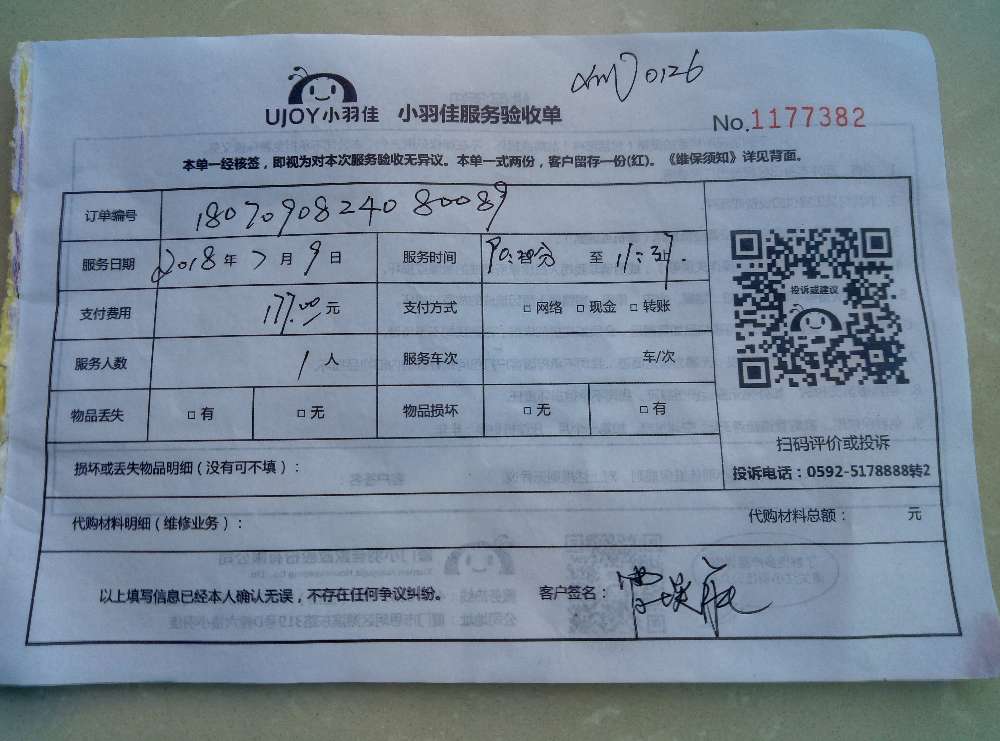 xm 0126
UJOY小羽佳 小羽佳服务验收单
No.1177382
本单一经核签，即视为对本次服务验收无异议。本单一式两份，客户留存一份(红)。《维保须知》详见背面。
订单编号 1807090824080089
服务日期 2018年7月9日 服务时间 至
支付费用 177.00元 支付方式 □ 网络 □ 现金 □ 转账
投诉或建议
服务人数 1人 服务车次 车/次
物品丢失 □ 有 □ 无 物品损坏 □ 无 □ 有
扫码评价或投诉
损坏或丢失物品明细（没有可不填）： 投诉电话：0592-5178888转2
代购材料明细（维修业务）： 代购材料总额： 元
以上填写信息已经本人确认无误，不存在任何争议纠纷。 客户签名：